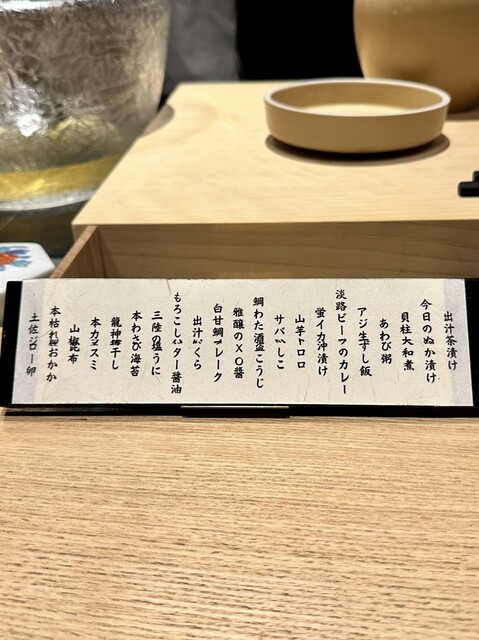 出汁茶漬け
今日のぬか漬け
貝柱大和煮
あわび粥
アジ生すし飯
淡路ビーフのカレー
蛍イカ沖漬け
山芋トロロ
サバへしこ
鯛わた酒盗こうじ
雅醸のXO醤
白甘鯛フレーク
出汁いくら
もろこしバター醤油
三陸の塩うに
本わさび海苔
龍神梅干し
本カラスミ
山椒昆布
本枯れ節おかか
土佐ジロー卵